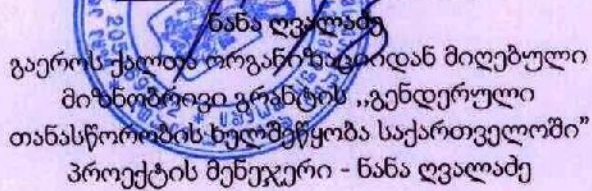 ნანა ღვალაძე
გაეროს ქალთა ორგანიზაციიდან მიღებული
მიზნობრივი გრანტის ,,გენდერული
თანასწორობის ხელშეწყობა საქართველოში”
პროექტის მენეჯერი - ნანა ღვალაძე